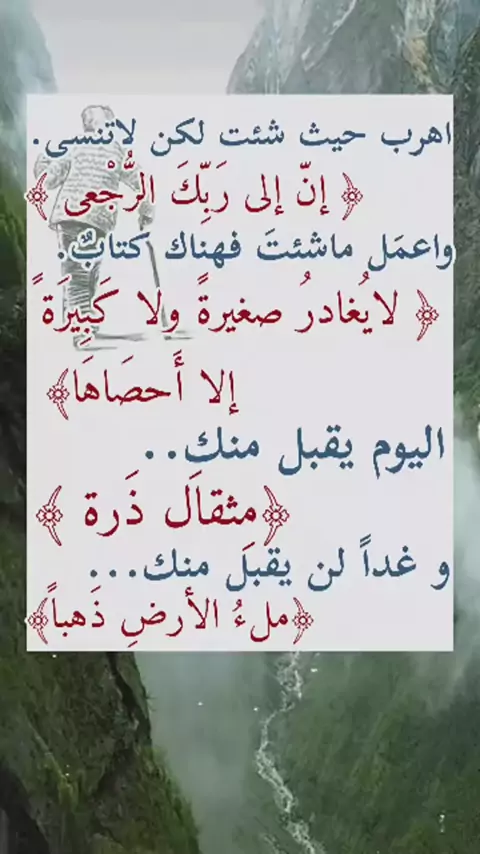 اهرب حيث شئت لكن لاتنسى.
﴿ إنّ إلى رَبِّكَ الرُّجْعى ﴾
واعمَل ماشئتَ فهناك كتابٌ.
﴿ لايُغادرُ صغيرةً ولا كَبِيرَةً
إلا أَحصَاهَا﴾
اليوم يقبل منك..
﴿مثقاَل ذَرة ﴾
و غداً لن يقبَل منك...
﴿ملءُ الأرضِ ذَهباً﴾